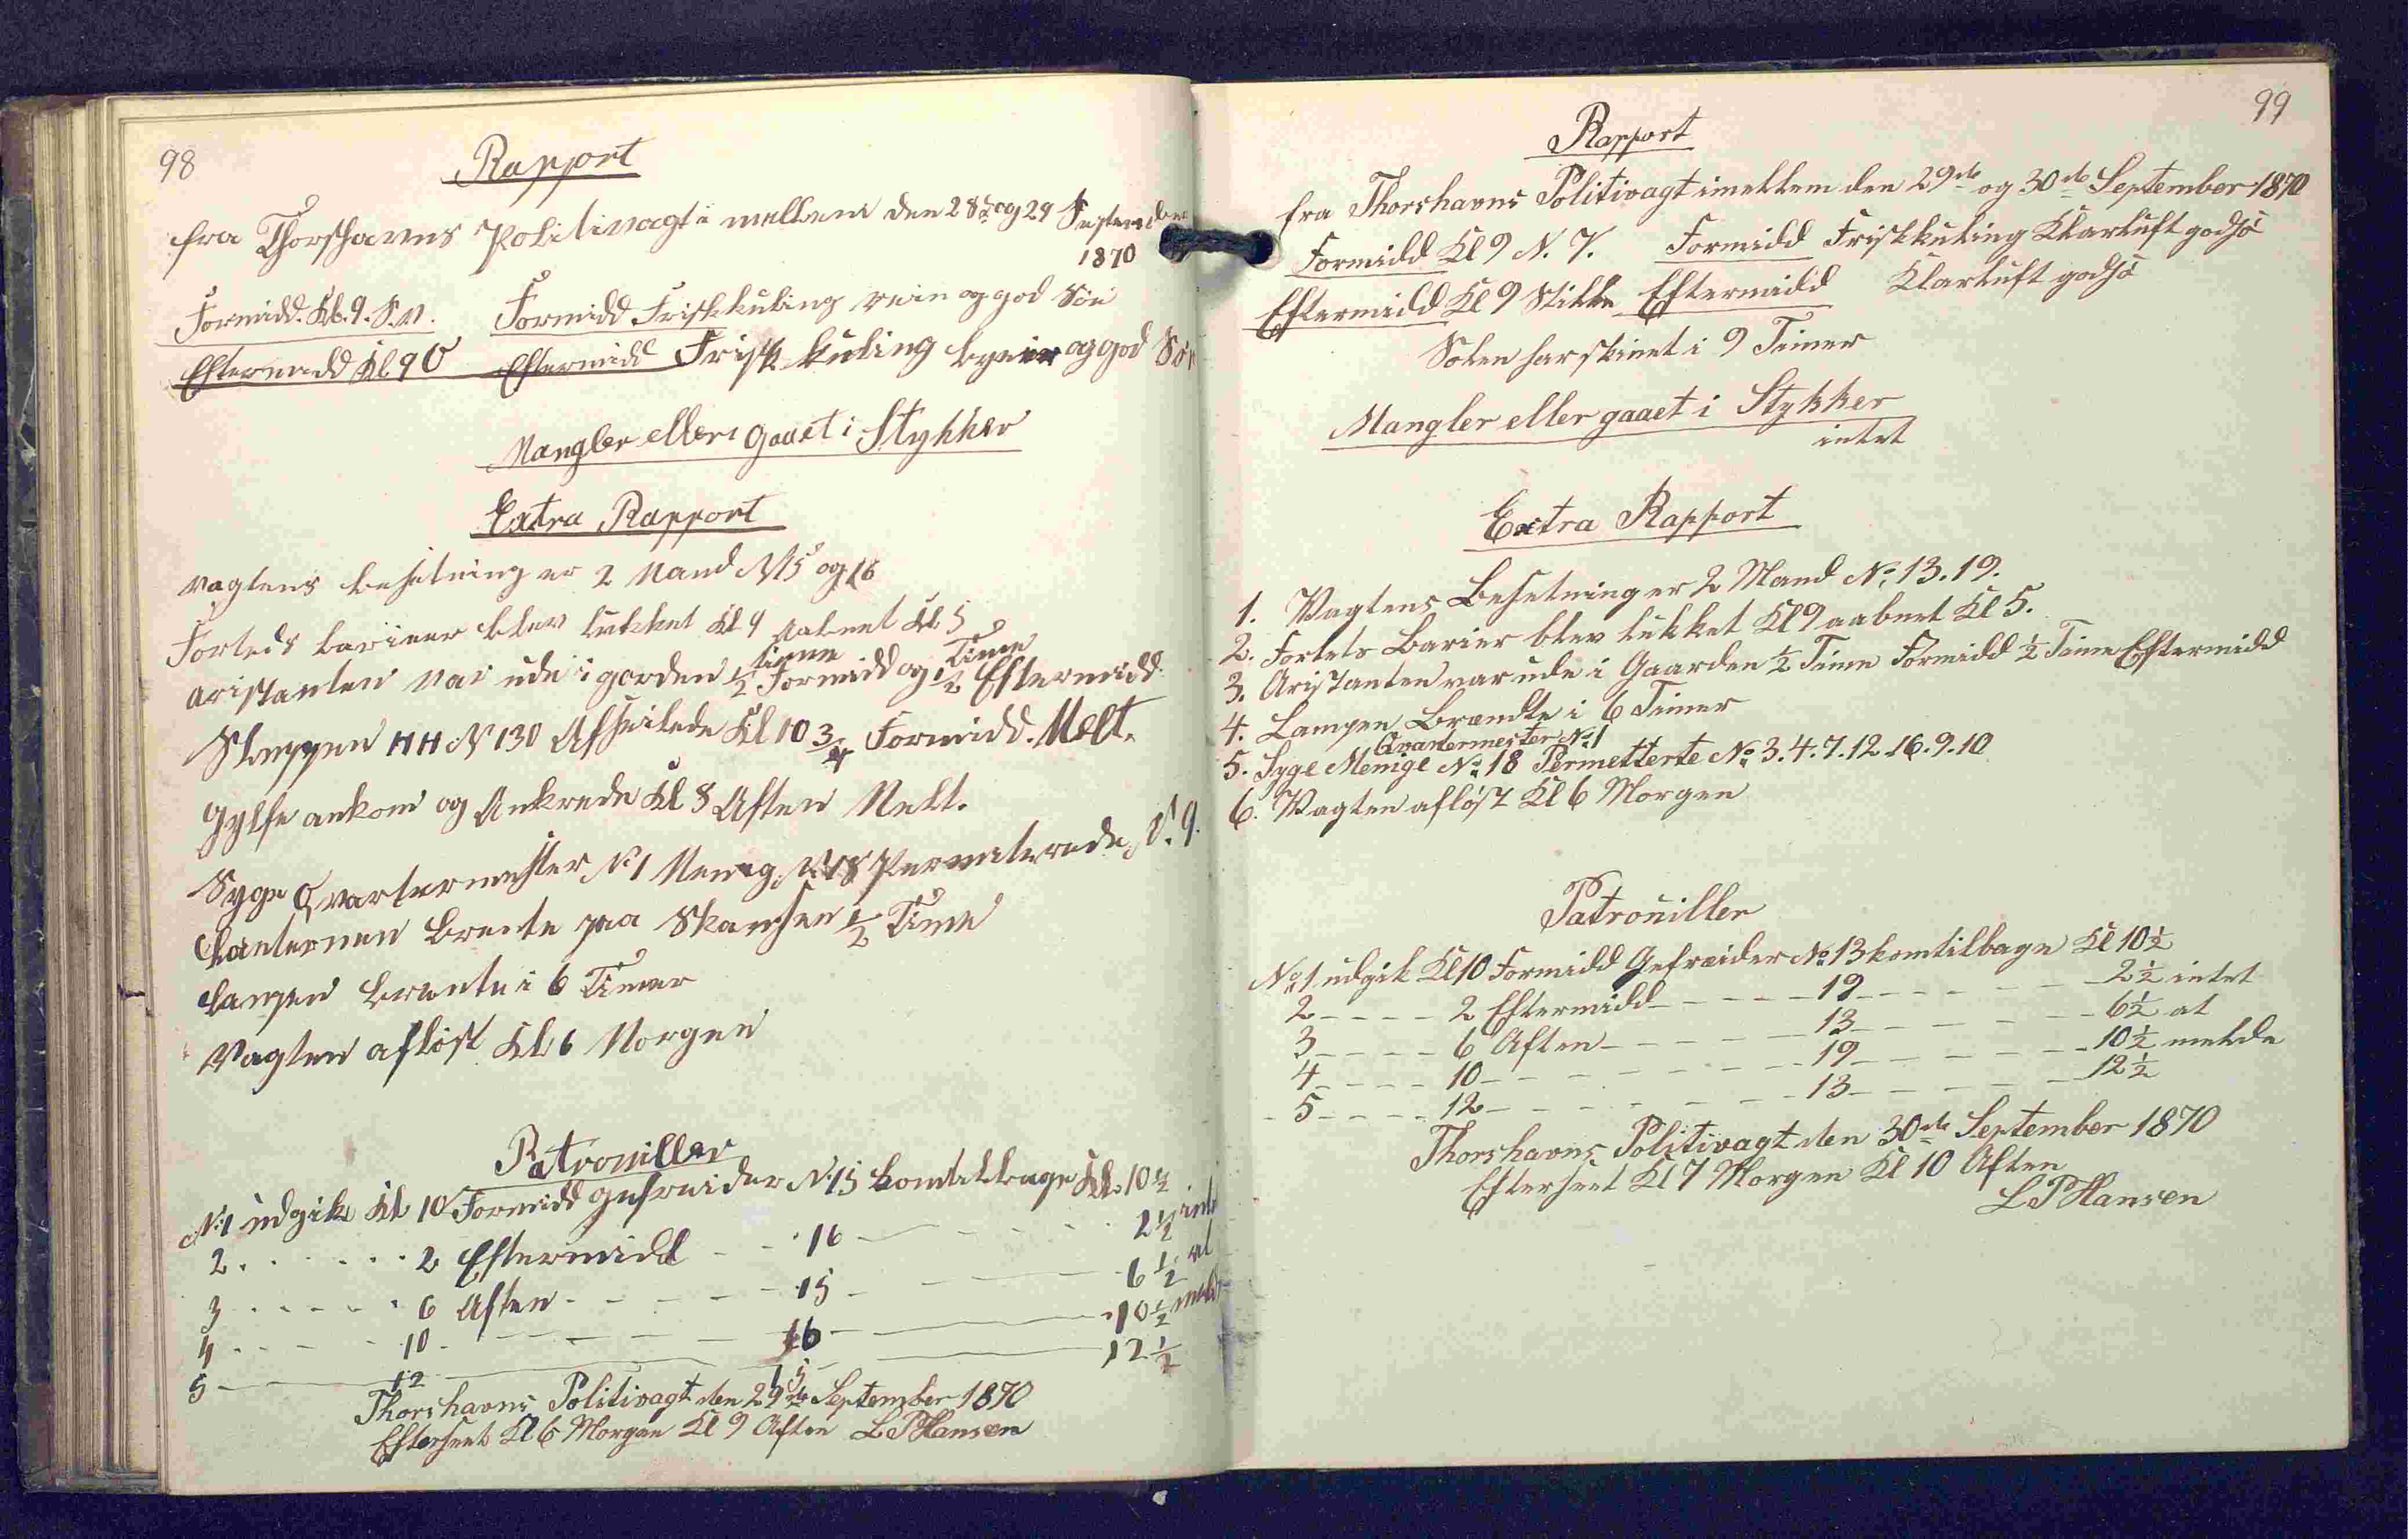 98
Rapport
fra Thorshavns Politivagt i mellem den 28de og 29 September
1870
Formidd. Kl. 9. S.V. Formidd Friskkuling rein og god Söi
Eftermidd Kl 9 O Eftermidd Frisk kuling byeier og god Söi
Mangler eller gaaet i Stykker
Extra Rapport
Vagtens besetning er 2 Mand N 15 og 16
Forteds barieer blev lukket Kl 9 aabnet Kl 5
Time Time
aristanten var ude i gorden ½ Formidd og ½ Eftermidd
Sleppen HH N 130 Afseilede Kl 10 Formidd. Melt.
Gylfe ankom og Ankrede Kl 8 Aften Melt.
Syge Qvartermester N: 1 Menig N: 18 Permeterede N. 9.
Lanternen brente paa Skansen ½ Time
Lampen brente i 6 Timer
Vagten aflöst Kl 6 Morgen
Patrouiller
N: 1 udgik Kl 10 Formidd gefreider N: 15 komtilbage Kl. 10½
2 . . . . . . 2 Eftermidd - - 16 - - - - 2½ intet
3 . - - - . 6 Aften - - - - - 15 - - - - 6½ at
4 . - - - 10 - - - - - 16 - - - 10½ melde
5 - - - 12 - - - 15 - - - 12½
Thorshavns Politivagt den 29de September 1870
Efterseet Kl 6 Morgen Kl 9 Aften L P Hansen
99
Rapport
fra Thorshavns Politivagt imellem den 29de og 30de September 1870
Formidd Kl 9 N. V. Formidd Friskkuling Klarluft godsö
Eftermidd Kl 9 Stille Eftermidd Klarluft godsö
Solen har skinet i 9 Timer
Mangler eller gaaet i Stykker
intet
Extra Rapport
1. Vagtens Besetning er 2 Mand No: 13. 19.
2. Fortets Barier blev lukket Kl 9 aabnet Kl 5.
3. Aristanten var ude i Gaarden ½ Time Formidd ½ Time Eftermidd
4. Lampen Brændte i 6 Timer
Qvartermester No 1
5. Syge Menige No 18 Permetterte No 3. 4. 7. 12. 16. 9. 10
6. Vagten aflöst Kl 6 Morgen
Patrouiller
No 1 udgik Kl 10 Formidd Gefreider No 13 komtilbage Kl 10½
2 - - - - - 2 Eftermidd - - - - - 19 - - - - - - 2½ intet
3 - - - - - 6 Aften - - - - - - 13 - - - - - - 6½ at
4 - - - - 10 - - - - - - - - 19 - - - - - - 10½ melde
5 - - - - 12 - - - - - - - - 13 - - - - - - 12½
Thorshavns Politivagt den 30de September 1870
Efterseet Kl 7 Morgen Kl 10 Aften
L P Hansen